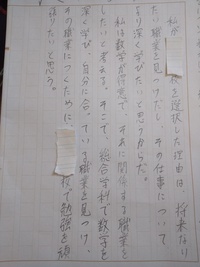 私が を選択した理由は、将来なり
たい職業を見つけだし、その仕事について
より深く学びたいと思うからだ。
私は数学が得意で、それに関係する職業を
したいと考える。そこで、総合学科で数学を
深く学び、自分に合っている職業を見つけ、
その職業につくために 校で勉強を頑
張りたいと思う。